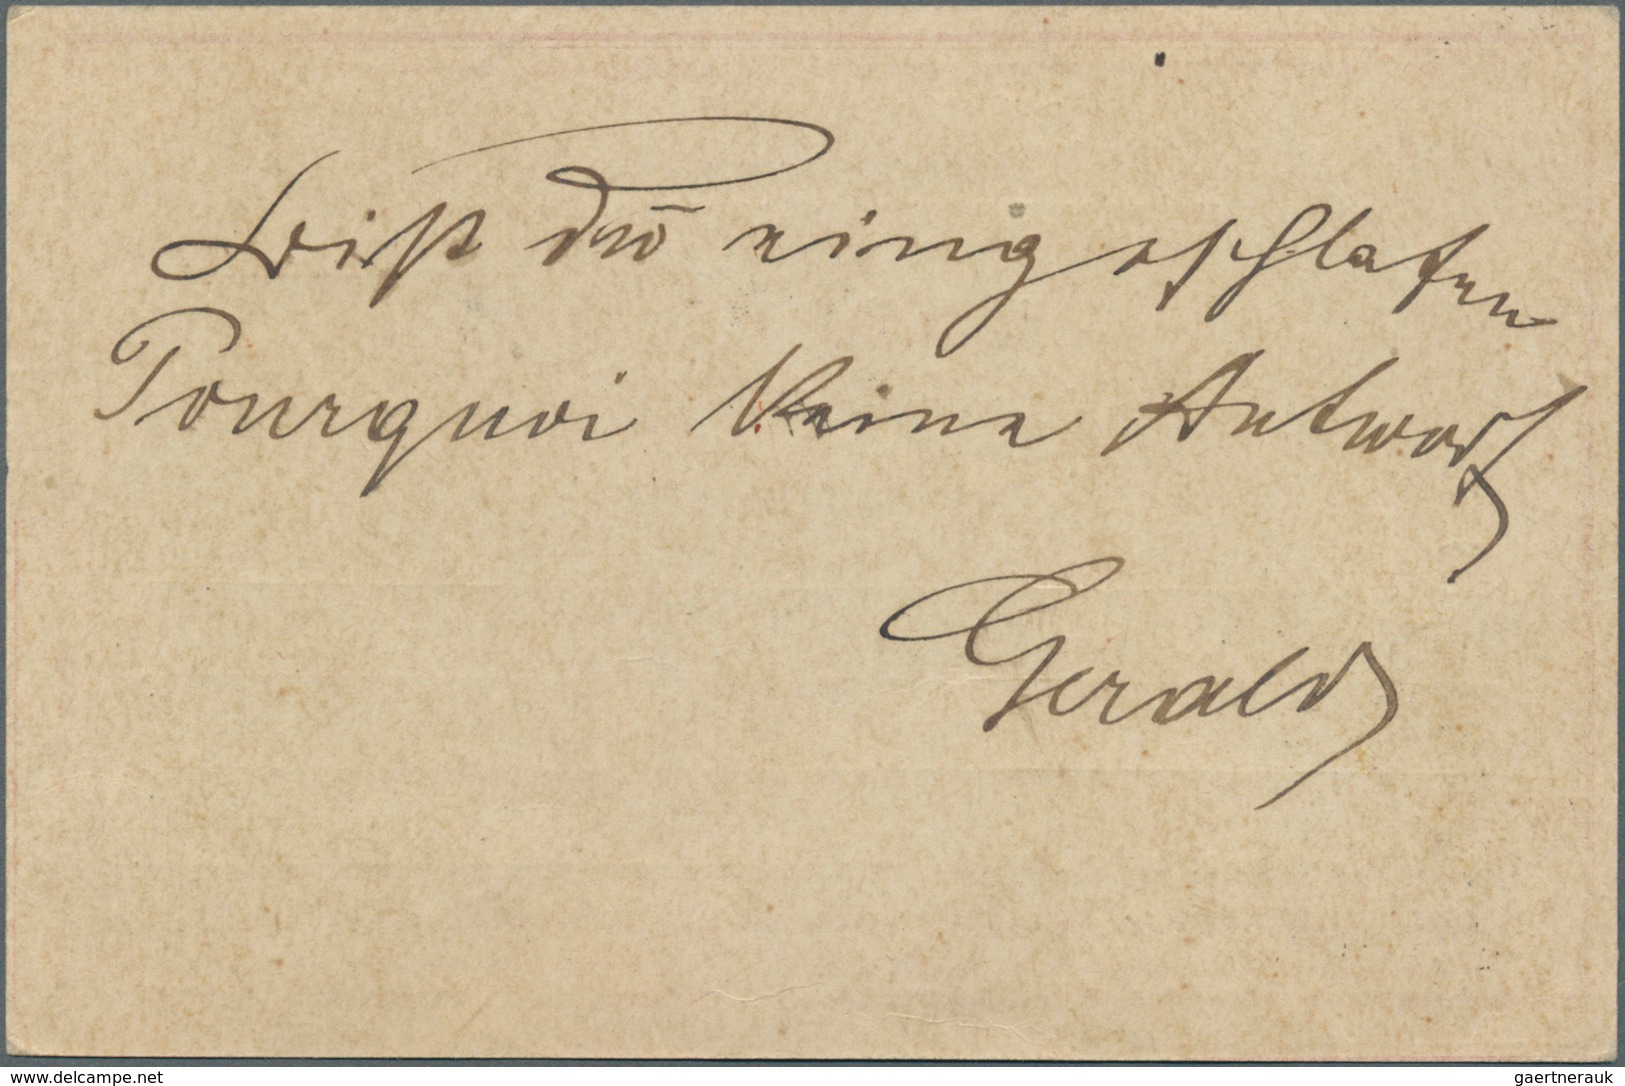 Bist Du eingeschlafen
Pourquoi keine Antwort
Gerald
www.delcampe.net
gaertnerauk